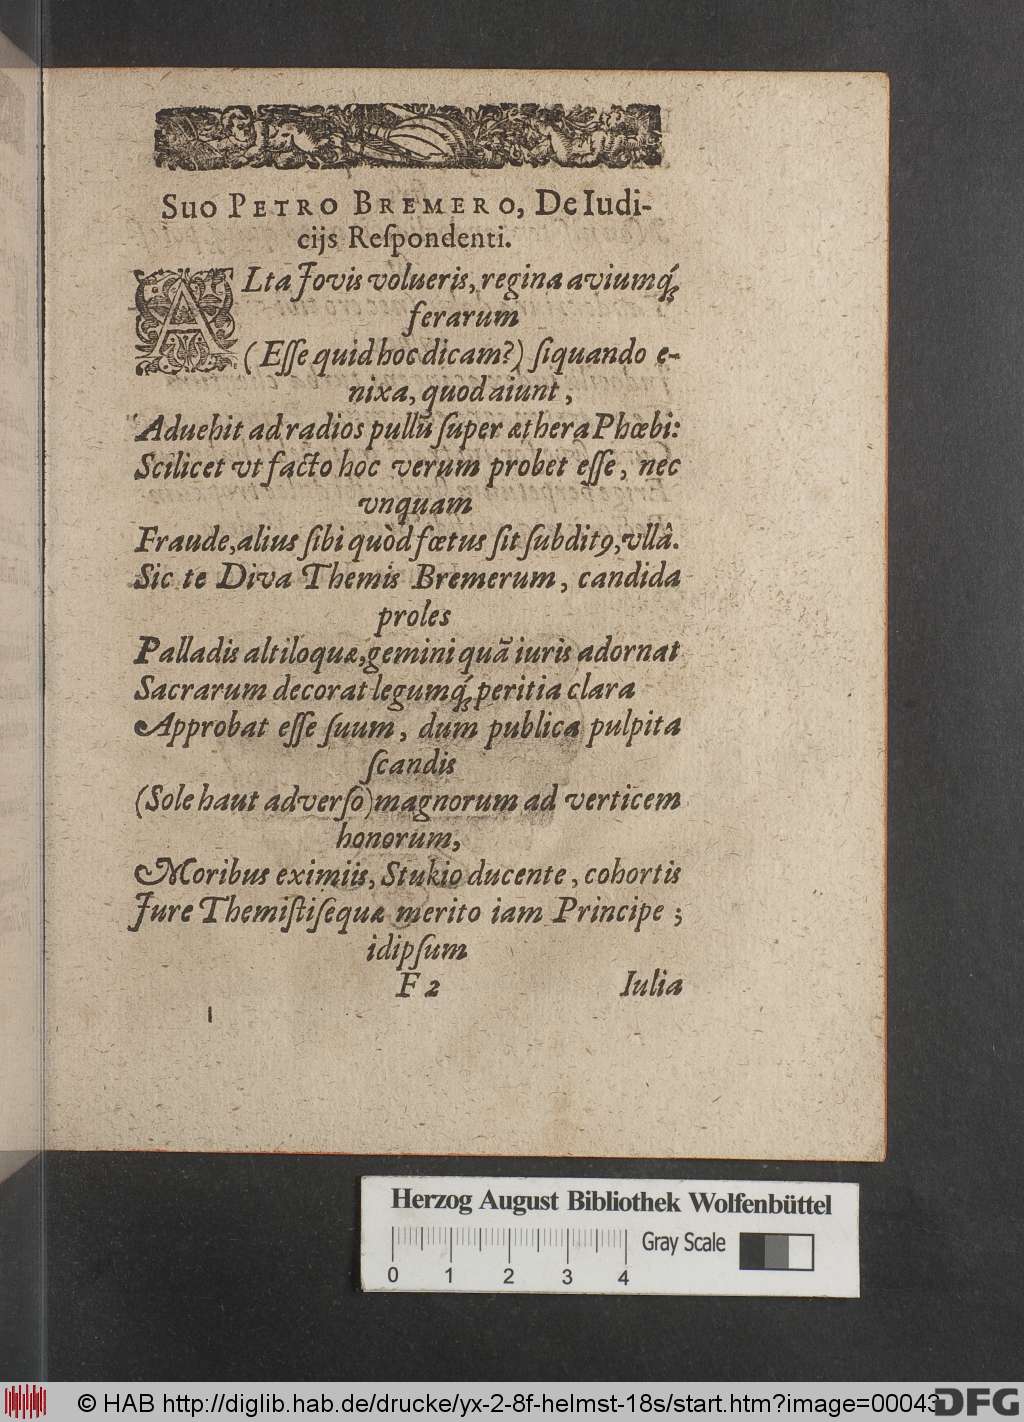 Suo Petro Bremero, De Iudi-
cijs Reſpondenti.
ALta Jovis volueris, regina aviumq́;
ferarum
(Eſſe quid hoc dicam?) ſiquando e-
nixa, quod aiunt,
Aduehit ad radios pullũ ſuper æthera Phœbi:
Scilicet vt facto hoc verum probet eſſe, nec
vnquam
Fraude, alius ſibi quòd fœtus ſit ſubditꝰ, vllâ.
Sic te Diva Themis Bremerum, candida
proles
Palladis altiloquæ, gemini quã iuris adornat
Sacrarum decorat legumq́; peritia clara
Approbat eſſe ſuum, dum publica pulpita
ſcandis
(Sole haut adverſo) magnorum ad verticem
honorum,
Moribus eximiis, Stukio ducente, cohortis
Jure Themiſtiſequæ merito iam Principe;
idipſum
F 2 Iulia
Herzog August Bibliothek Wolfenbüttel
Gray Scale
0 1 2 3 4
© HAB http://diglib.hab.de/drucke/yx-2-8f-helmst-18s/start.htm?image=00043
DFG